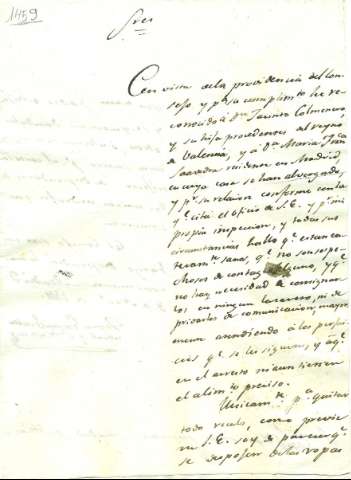 1459
Sres
Con vista de la providencia del Con-
sejo y pa. su cumplimto. he re-
conocido á Dn. Jacinto Colmenero
y su hija procedentes del reyno
de Valencia, y á Da. Maria Franca.
Saavedra residente en Madrid,
en cuya casa se han alvergado,
y pr. su relacion conforme con la
qe. cita el oficio de S.E. y pr. mi
propia inspeccion, y todas sus
circunstancias hallo qe. estan en-
teramte. sanas, qe. no son sospe-
chosos de contagio alguno, y qe.
no hay necesidad de consignar-
los en ningun lazareto, ni de
privarlos de comunicacion, mayor-
mente atendiendo á los perjui-
cios qe. se les siguen, y á qe.
en el arresto ni aun tienen
el alimto. preciso.
Unicamte. pa. quitar
todo recelo, como previe-
ne S.E. soy de parecer qe.
se depositen de las ropas